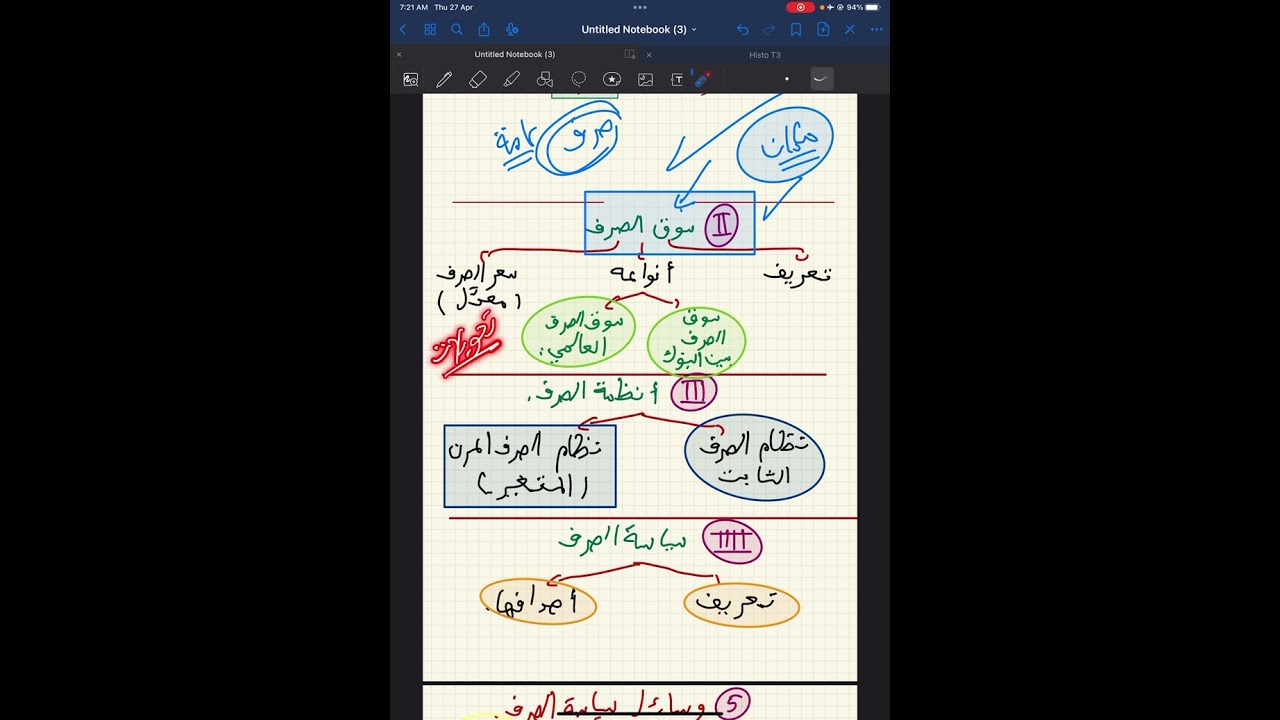 7:21 AM Thu 27 Apr
94%
Untitled Notebook (3)
Untitled Notebook (3)
Histo T3
مكان
صرف
II سوق الصرف
تعريف
أنواعه
سعر الصرف
(معدّل)
سوق
الصرف
بين البنوك
سوق الصرف
العالمي:
III أنظمة الصرف.
نظام الصرف
الثابت
نظام الصرف المرن
(المتغير)
IIII سياسة الصرف
تعريف
أهدافها.
5 وسائل سياسة الصرف